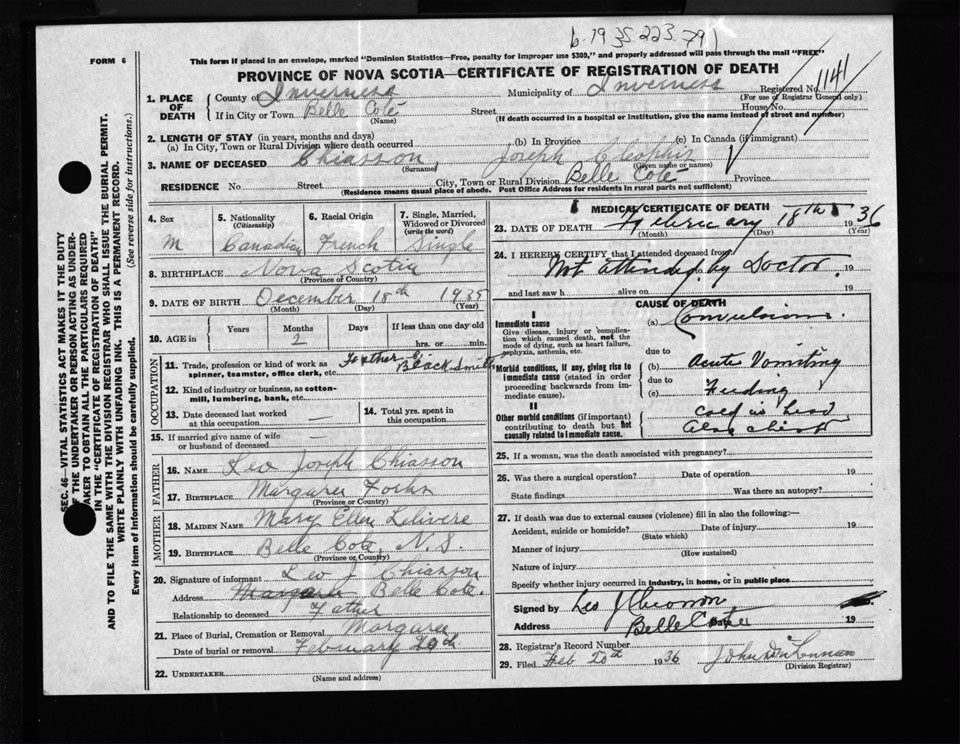 b.1935.223.791
FORM 6
This form if placed in an envelope, marked "Dominion Statistics—Free, penalty for improper use $300," and properly addressed will pass through the mail "FREE"
PROVINCE OF NOVA SCOTIA—CERTIFICATE OF REGISTRATION OF DEATH
1. PLACE OF DEATH
County of Inverness Municipality of Inverness Registered No. 1141
(For use of Registrar General only)
If in City or Town Belle Coté Street House No.
(Name) (If death occurred in a hospital or institution, give the name instead of street and number)
2. LENGTH OF STAY (in years, months and days)
(a) In City, Town or Rural Division where death occurred (b) In Province (c) In Canada (if immigrant)
3. NAME OF DECEASED Chiasson, Joseph
(Surname) (Given name or names)
RESIDENCE No. Street City, Town or Rural Division Belle Coté Province
(Residence means usual place of abode. Post Office Address for residents in rural parts not sufficient)
4. Sex M
5. Nationality (Citizenship) Canadian
6. Racial Origin French
7. Single, Married, Widowed or Divorced (write the word) Single
8. BIRTHPLACE Nova Scotia
(Province or Country)
9. DATE OF BIRTH December 18th 1935
(Month) (Day) (Year)
10. AGE in Years Months 2 Days If less than one day old hrs. or min.
OCCUPATION
11. Trade, profession or kind of work as spinner, teamster, office clerk, etc. Father Black Smith
12. Kind of industry or business, as cotton-mill, lumbering, bank, etc.
13. Date deceased last worked at this occupation —
14. Total yrs. spent in this occupation
15. If married give name of wife or husband of deceased —
FATHER
16. NAME Leo Joseph Chiasson
17. BIRTHPLACE Margaree Forks
(Province or Country)
MOTHER
18. MAIDEN NAME Mary Ellen Lelivere
19. BIRTHPLACE Belle Cote, N.S.
(Province or Country)
20. Signature of informant Leo J Chiasson
Address Belle Cote.
Relationship to deceased Father
21. Place of Burial, Cremation or Removal Margaree
Date of burial or removal February
22. UNDERTAKER
(Name and address)
MEDICAL CERTIFICATE OF DEATH
23. DATE OF DEATH February 18th 1936
(Month) (Day) (Year)
24. I HEREBY CERTIFY that I attended deceased from
Not attended by Doctor. 19
and last saw h alive on 19
CAUSE OF DEATH
I
Immediate cause
Give disease, injury or complication which caused death, not the mode of dying, such as heart failure, asphyxia, asthenia, etc.
(a) Convulsions.
due to
Morbid conditions, if any, giving rise to immediate cause (stated in order proceeding backwards from immediate cause).
(b) Acute Vomiting
due to
(c) Feeding
II
Other morbid conditions (if important) contributing to death but not causally related to immediate cause.
Cold in head
Also chest
25. If a woman, was the death associated with pregnancy?
26. Was there a surgical operation? Date of operation 19
State findings Was there an autopsy?
27. If death was due to external causes (violence) fill in also the following:—
Accident, suicide or homicide? Date of injury 19
(State which)
Manner of injury
(How sustained)
Nature of injury
Specify whether injury occurred in industry, in home, or in public place
Signed by Leo J Chiasson
Address Belle Cote Date 19
28. Registrar's Record Number
29. Filed Feb 20th 1936 John McLennan
(Division Registrar)
SEC. 46—VITAL STATISTICS ACT MAKES IT THE DUTY
OF THE UNDERTAKER OR PERSON ACTING AS UNDER-
TAKER TO OBTAIN ALL THE PARTICULARS REQUIRED
IN THE "CERTIFICATE OF REGISTRATION OF DEATH"
AND TO FILE THE SAME WITH THE DIVISION REGISTRAR WHO SHALL ISSUE THE BURIAL PERMIT.
WRITE PLAINLY WITH UNFADING INK. THIS IS A PERMANENT RECORD.
Every item of information should be carefully supplied. (See reverse side for instructions.)